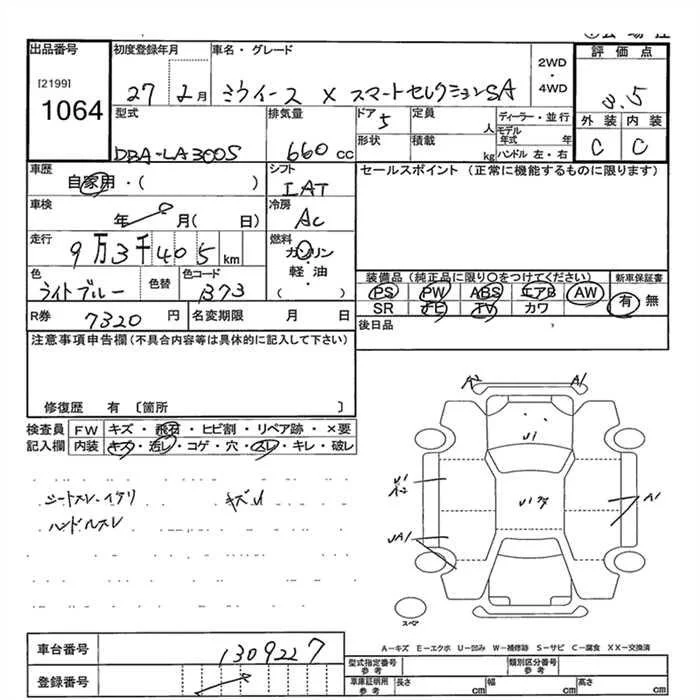 出品番号 初度登録年月 車名・グレード 2WD・4WD 評価点
[2199]
1064
27 2月 ミライース X スマートセレクションSA 3.5
型式 排気量 ドア 定員 人 ディーラー・並行 外装 内装
DBA-LA300S 660cc 5 モデル年式 年 C C
形状 積載 kg ハンドル 左・右
車歴 自家用・( ) シフト IAT セールスポイント (正常に機能するものに限ります)
車検 年 月( 日) 冷房 AC
走行 9万3千405km 燃料 ガソリン・軽油・( )
色 ライトブルー 色替 色コード B73
装備品(純正品に限り○をつけてください) 新車保証書
PS PW ABS エアB AW 有 無
SR ナビ TV カワ
R券 7320円 名変期限 月 日 後日品
注意事項申告欄(不具合内容等は具体的に記入して下さい)
修復歴 有 〔箇所 〕
検査員記入欄 FW キズ・飛石・ヒビ割・リペア跡・×要
内装 キズ・汚レ・コゲ・穴・スレ・キレ・破レ
シートスレ・イタリ キズ
ハンドルスレ
A2 A1
U1
U1
A2
A1
UA1
スペア
A-キズ E-エクボ U-凹み W-補修跡 S-サビ C-腐食 XX-交換済
車台番号 1309227
登録番号
型式指定番号 参考 類別区分番号 参考
車庫証明用 参考 長さ cm 幅 cm 高さ cm